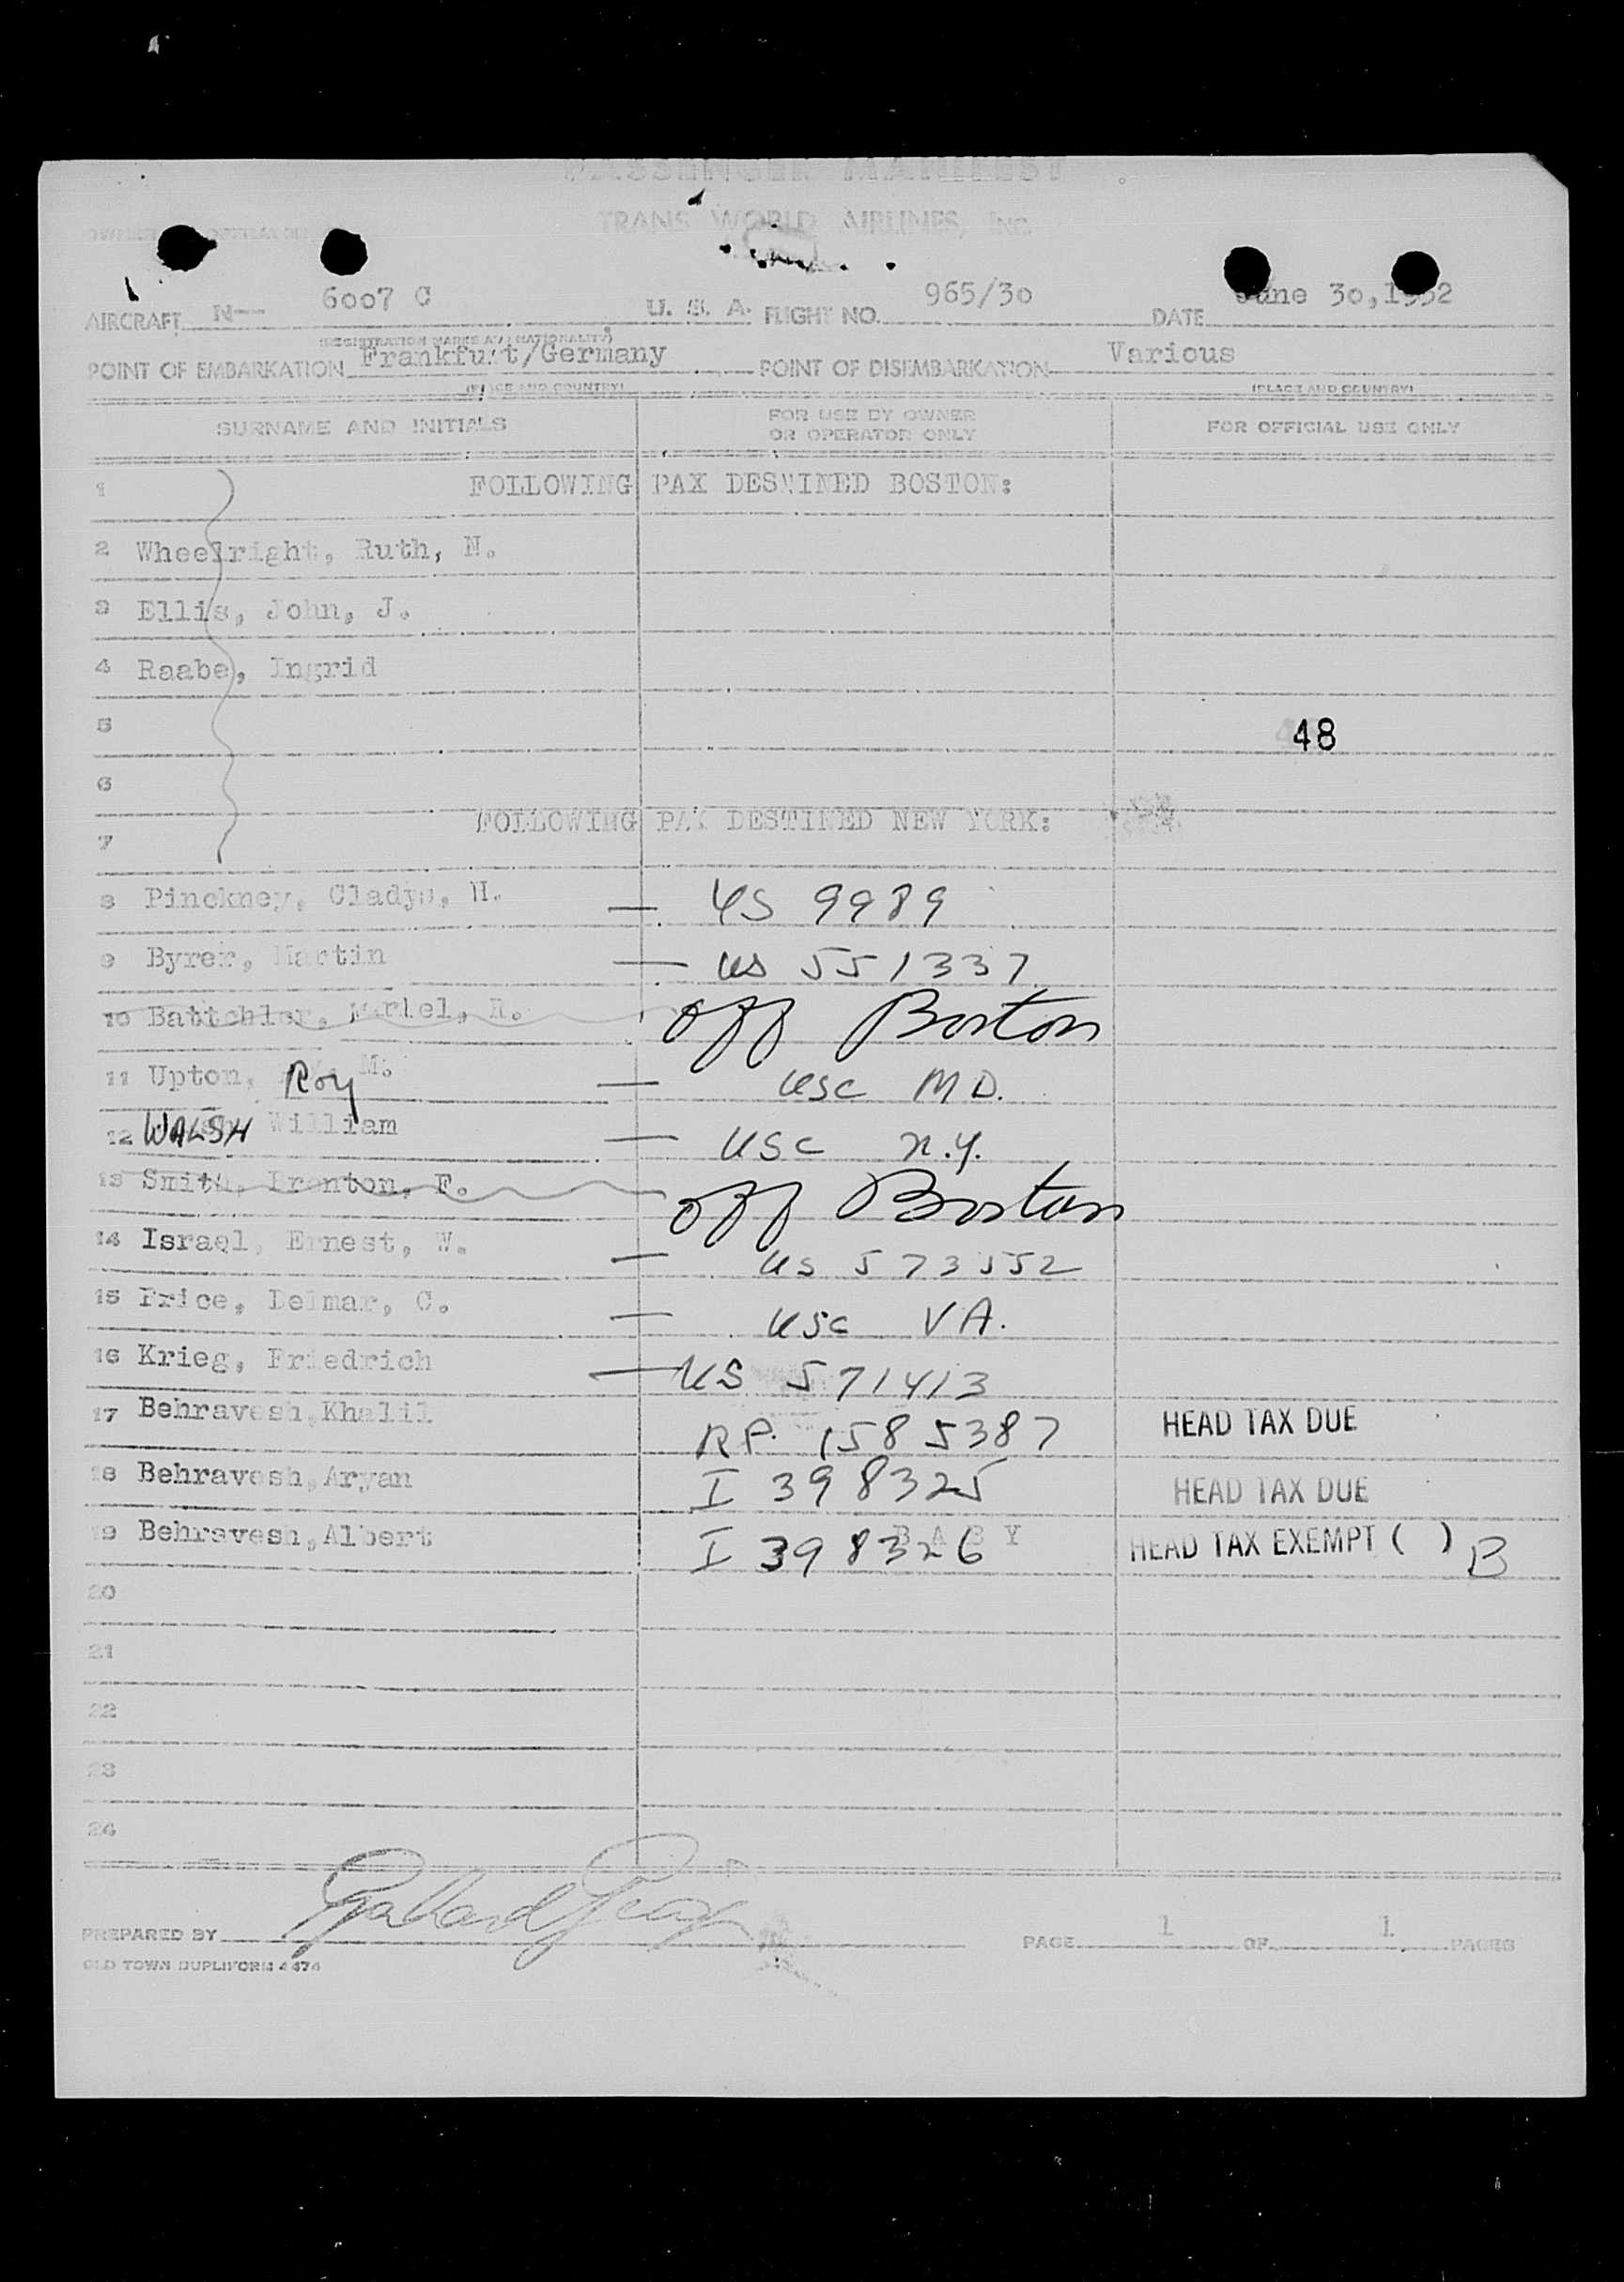 PASSENGER MANIFEST
TRANS WORLD AIRLINES, INC.
OWNER OPERATOR
AIRCRAFT N-- 6007 C U. S. A. FLIGHT NO. 965/30 DATE June 30,1952
(REGISTRATION MARKS AND NATIONALITY)
POINT OF EMBARKATION Frankfurt/Germany POINT OF DISEMBARKATION Various
(PLACE AND COUNTRY) (PLACE AND COUNTRY)
SURNAME AND INITIALS FOR USE BY OWNER OR OPERATOR ONLY FOR OFFICIAL USE ONLY
1 FOLLOWING PAX DESTINED BOSTON:
2 Wheelright, Ruth, N.
3 Ellis, John, J.
4 Raabe, Ingrid
5 48
6
7 FOLLOWING PAX DESTINED NEW YORK:
8 Pinckney, Gladys, H. — US 9989
9 Byrer, Martin — US 551337
10 Battchler, H. off Boston
11 Upton, Roy M. — USC MD.
12 WALSH William — USC N.Y.
13 Smith, F. off Boston
14 Israel, Ernest, W. — US 573552
15 Price, Delmar, C. — USC VA.
16 Krieg, Friedrich — US 571413
17 Behravesh,Khalil RP. 1585387 HEAD TAX DUE
18 Behravesh,Aryan I 398325 HEAD TAX DUE
19 Behravesh,Albert BABY I 398326 HEAD TAX EXEMPT ( ) B
20
21
22
23
24
PREPARED BY PAGE 1 OF 1 PAGES
OLD TOWN DUPLIFORM 4474